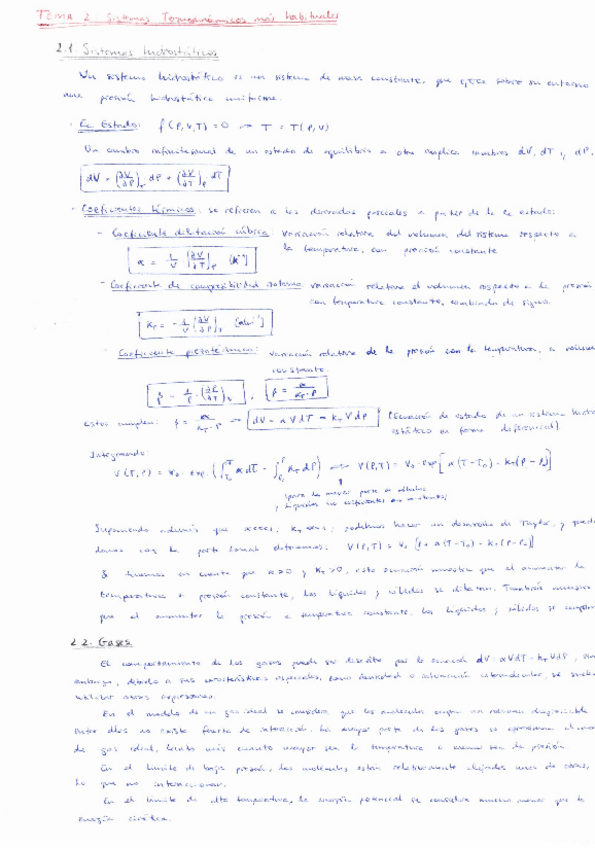 TEMA 2. Sistemas Termodinámicos más habituales
2.1. Sistemas hidrostáticos
Un sistema hidrostático es un sistema de masa constante, que ejerce sobre su entorno
una presión hidrostática uniforme.
· Ec Estado: f(P,V,T) = 0 → T = T(P,V)
Un cambio infinitesimal de un estado de equilibrio a otro implica cambios dV, dT y dP.
dV = (∂V/∂P)_T dP + (∂V/∂T)_P dT
· Coeficientes térmicos: se refieren a las derivadas parciales a partir de la ec estado:
- Coeficiente dilatación cúbica variación relativa del volumen del sistema respecto a
la temperatura, con presión constante
α = 1/V (∂V/∂T)_P [K⁻¹]
- Coeficiente de compresibilidad isoterma variación relativa el volumen respecto a la presión
con temperatura constante, cambiado de signo.
K_T = - 1/V (∂V/∂P)_T [atm⁻¹]
- Coeficiente piezotérmico: variación relativa de la presión con la temperatura, a volumen
constante.
β = 1/P (∂P/∂T)_V , β = α/(K_T·P)
Estos cumplen: β = α/(K_T·P) → dV = αVdT - K_T VdP (Ecuación de estado de un sistema hidro
estático en forma diferencial).
Integrando:
V(T,P) = V₀ · exp (∫_{T₀}^{T} α dT - ∫_{P₀}^{P} K_T dP) → V(P,T) = V₀ · exp [α(T-T₀) - K_T(P-P₀)]
(para la mayor parte de sólidos
y líquidos los coeficientes son constantes)
Suponiendo además que α<<<1, K_T<<<1, podemos hacer un desarrollo de Taylor, y
con la parte lineal obtenemos: V(P,T) = V₀ [1 + α(T-T₀) - K_T(P-P₀)]
Si tenemos en cuenta que α>0 y K_T>0, esta ecuación muestra que al aumentar la
temperatura a presión constante, los líquidos y sólidos se dilatan. También muestra
que al aumentar la presión a temperatura constante, los líquidos y sólidos se
2.2. Gases
El comportamiento de los gases puede ser descrito por la ecuación dV = αVdT - K_T VdP, sin
embargo, debido a sus características especiales, como densidad o interacción intermolecular, se suele
utilizar otras expresiones.
En el modelo de un gas ideal se considera que las moléculas ocupan un volumen despreciable
entre ellas no existe fuerza de interacción. La mayor parte de los gases se aproximan al
de gas ideal, tanto más cuanto mayor sea la temperatura o menor sea la presión
En el límite de baja presión, las moléculas están relativamente alejadas unas de otras,
lo que no interaccionan.
En el límite de alta temperatura, la energía potencial se considera mucho menor que la
energía cinética.